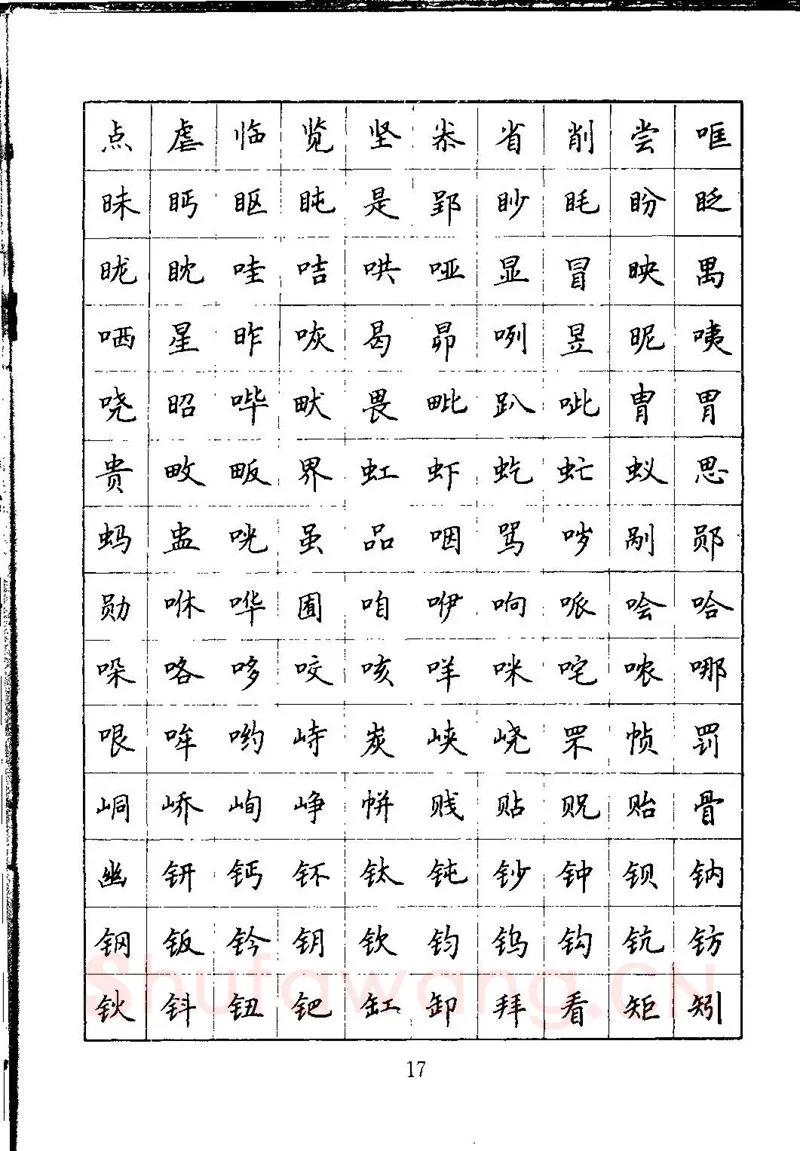 点虐临览竖尜省削尝哐
昧眄眍盹是郢眇眊盼眨
昽眈哇咭哄哑显冒映禺
哂星昨咴曷昴咧昱昵咦
哓昭哔畎畏毗趴呲胄胃
贵畋畈界虹虾虼虻蚁思
蚂盅咣虽品咽骂哕剐郧
勋咻哗囿咱咿响哌哙哈
哚咯哆咬咳咩咪咤哝哪
哏哞哟峙炭峡峣罘帧罚
峒峤峋峥帡贱贴贶贻骨
幽钘钙钚钛钝钞钟钡钠
钢钣钤钥钦钧钨钩钪钫
钬钭钮钯缸卸拜看矩矧
Shufawang.CN
17